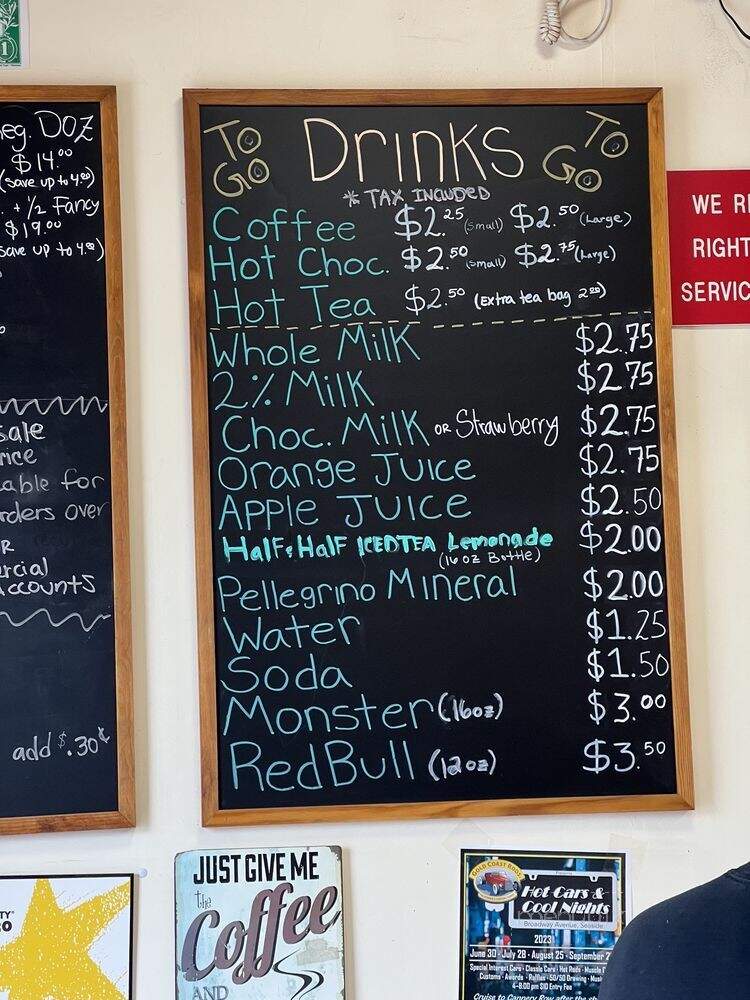 eg. DOZ
$14.00
(save up to 4.00)
+ 1/2 Fancy
$19.00
save up to 4.00)
add $.30¢
TO GO
Drinks
TO GO
* TAX INCLUDED
Coffee $2.25 (small) $2.50 (Large)
Hot Choc. $2.50 (small) $2.75 (Large)
Hot Tea $2.50 (Extra tea bag 2.00)
Whole Milk $2.75
2% Milk $2.75
Choc. Milk or Strawberry $2.75
Orange Juice $2.75
Apple Juice $2.50
Half & Half ICEDTEA Lemonade $2.00
(16 oz Bottle)
Pellegrino Mineral $2.00
Water $1.25
Soda $1.50
Monster (16oz) $3.00
RedBull (12oz) $3.50
WE R
RIGHT
SERVIC
JUST GIVE ME
the
Coffee
AND
GOLD COAST RODS
Presents
Hot Cars &
Cool Nights
Broadway Avenue, Seaside
2023
June 30 - July 28 - August 25 - September 2
Special Interest Cars · Classic Cars · Hot Rods · Muscle
Customs · Awards · Raffles · 50/50 Drawing · Musi
4-8:00 pm $10 Entry Fee
Cruise to Cannery Row after the sh